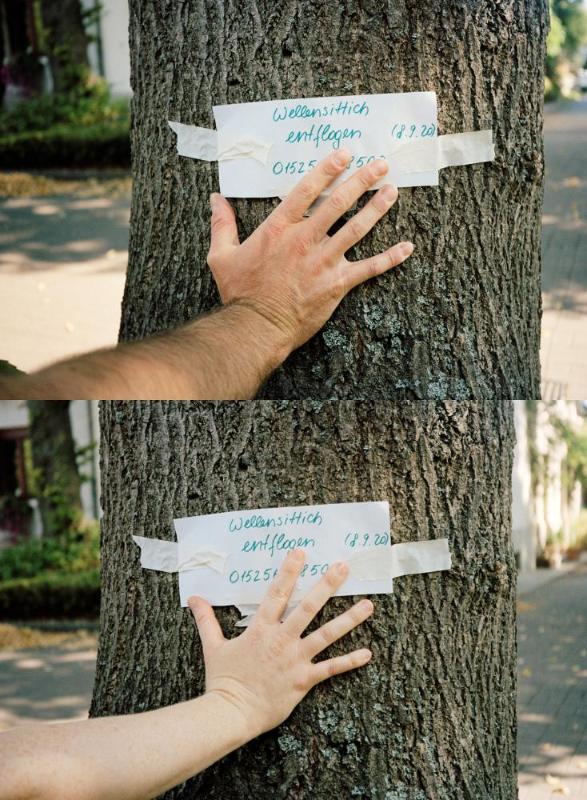 Wellensittich
entflogen (8.9.20)
01525 850
Wellensittich
entflogen (8.9.20)
01525 850